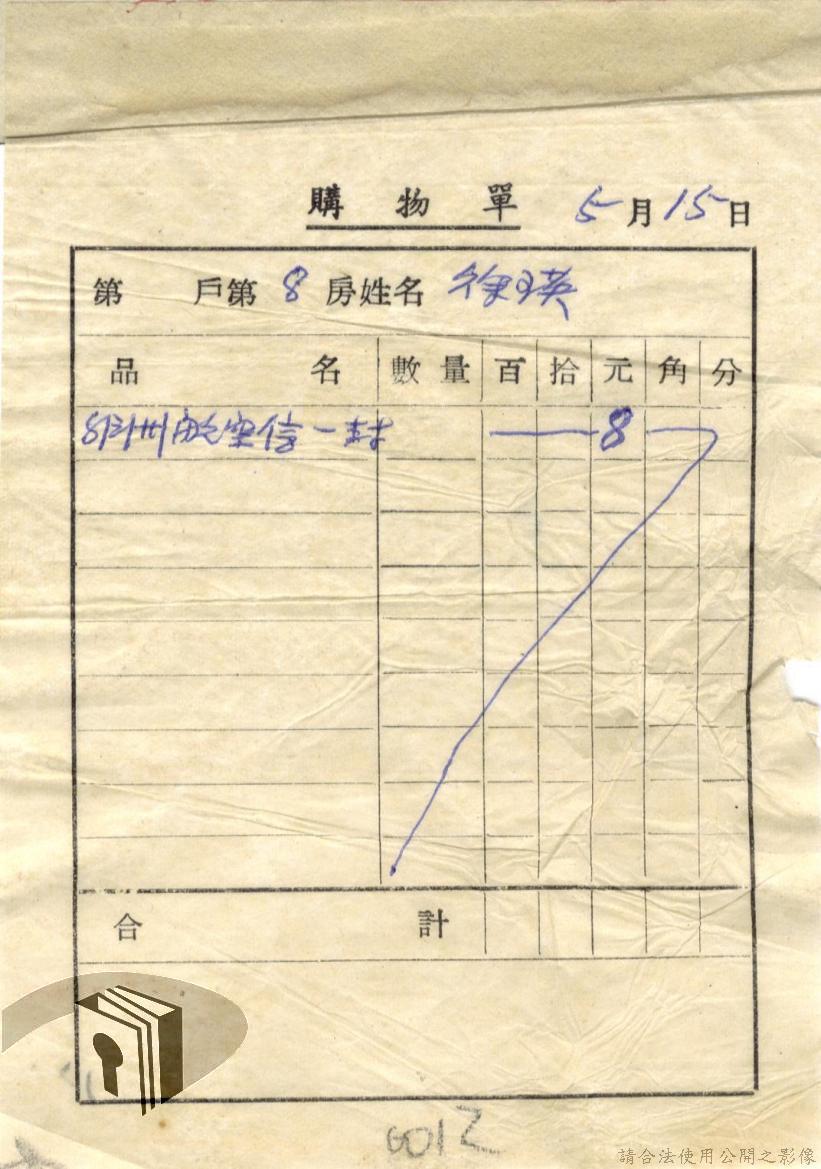 購物單 5月15日
第 戶第 8 房姓名 徐
品名 數量 百 拾 元 角 分
州航空信一封 8
合計
6012
請合法使用公開之影像